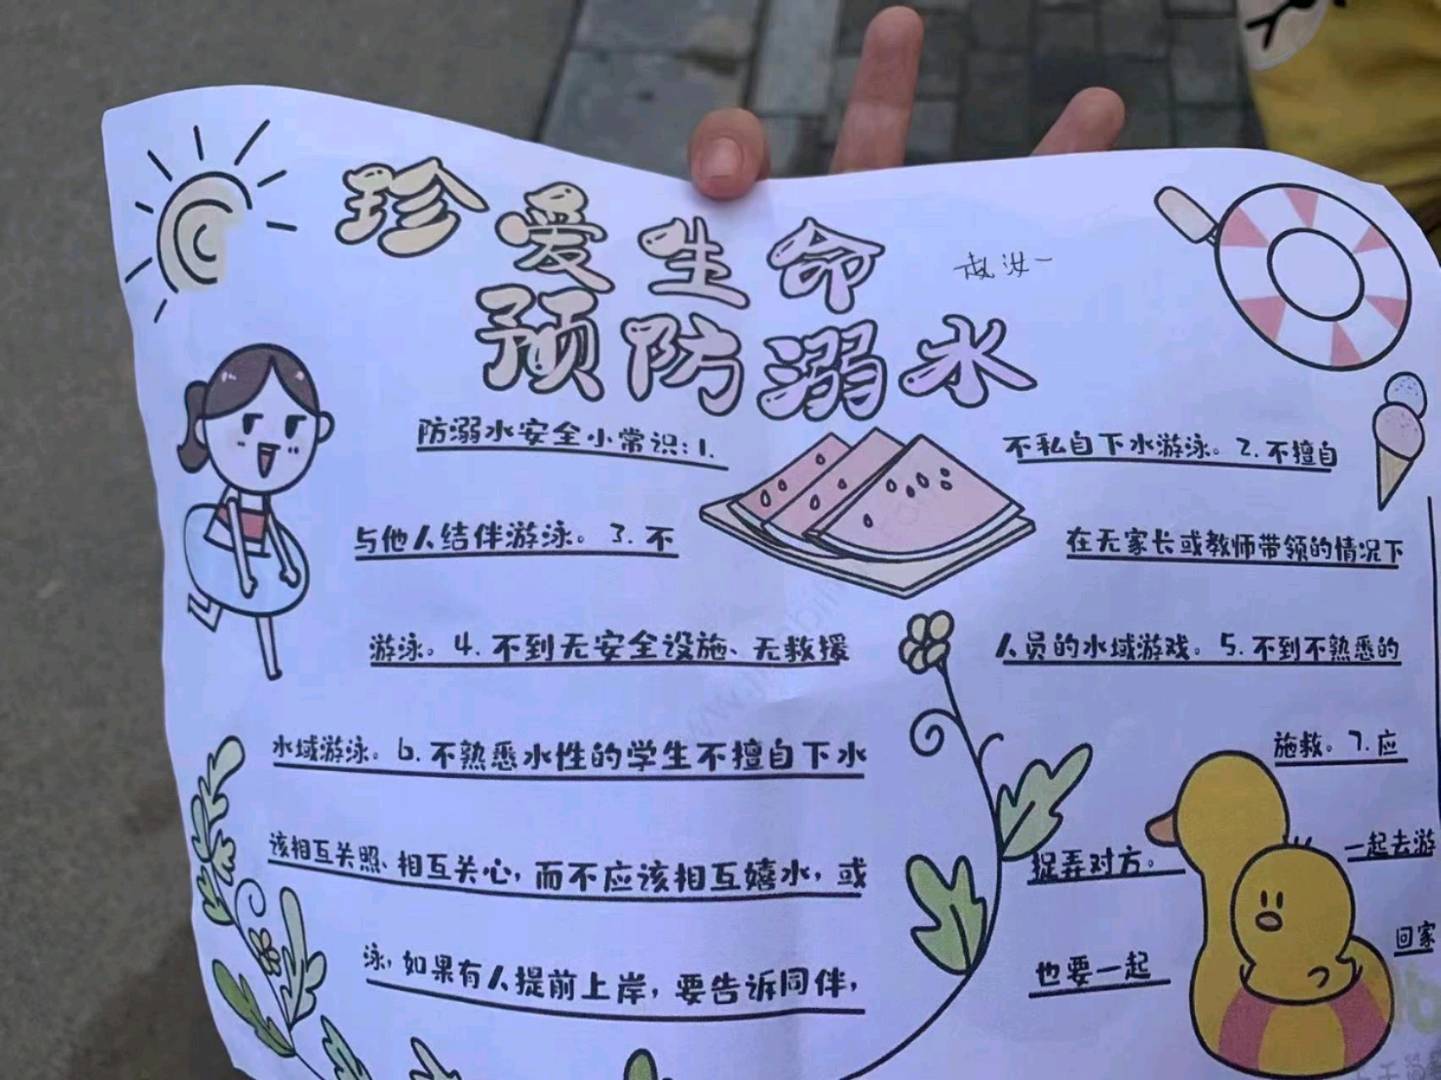 珍爱生命
预防溺水
防溺水安全小常识:1. 不私自下水游泳。2.不擅自
与他人结伴游泳。3.不 在无家长或教师带领的情况下
游泳。4.不到无安全设施、无救援 人员的水域游戏。5.不到不熟悉的
水域游泳。6.不熟悉水性的学生不擅自下水 施救。7.应
该相互关照、相互关心,而不应该相互嬉水,或 捉弄对方。 一起去游
泳,如果有人提前上岸,要告诉同伴, 也要一起 回家